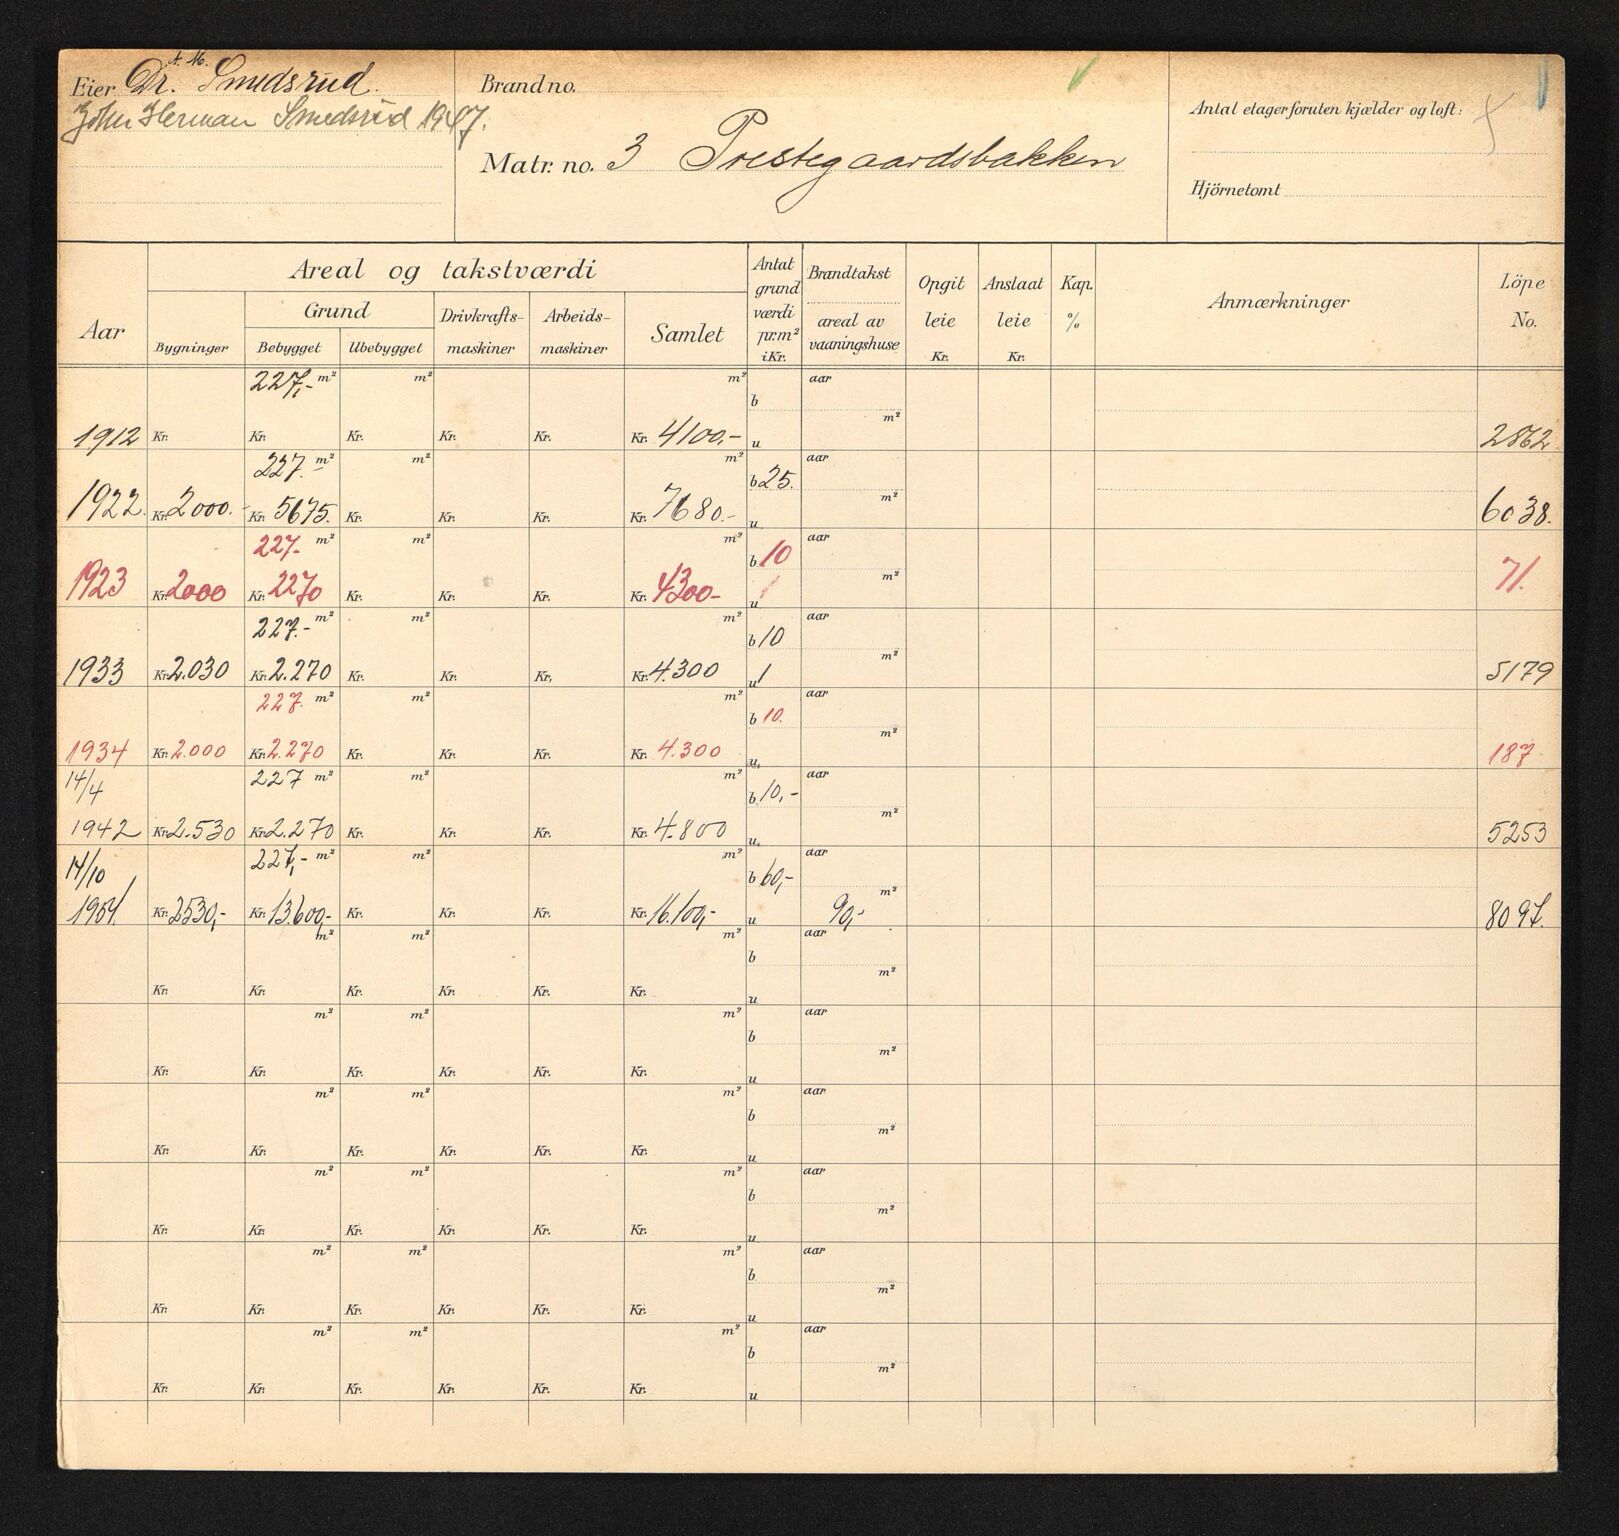 Eier Dr. A. M. Smedsrud.
John Herman Smedsrud 1947.
Brand no.
Matr. no. 3 Prestegaardsbakken
Antal etager foruten kjælder og loft:
Hjörnetomt
Aar
Areal og takstværdi
Bygninger
Grund
Bebygget Ubebygget
Drivkrafts-
maskiner
Arbeids-
maskiner
Samlet
Antat
grund
værdi
pr. m²
i Kr.
Brandtakst
areal av
vaaningshuse
Opgit
leie
Kr.
Anslaat
leie
Kr.
Kap.
%
Anmærkninger
Löpe
No.
227,- m² m² m² b aar m²
1912 Kr. Kr. Kr. Kr. Kr. Kr. 4100,- u 2862
227.- m² m² m² b 25. aar m²
1922. Kr. 2000.- Kr. 5675. Kr. Kr. Kr. Kr. 7680.- u 6038.
227.- m² m² m² b 10 aar m²
1923 Kr. 2000 Kr. 2270 Kr. Kr. Kr. Kr. 4300- u 1 71.
227.- m² m² m² b 10 aar m²
1933 Kr. 2.030 Kr. 2.270 Kr. Kr. Kr. Kr. 4.300 u 1 5179
227. m² m² m² b 10. aar m²
1934 Kr. 2.000 Kr. 2.270 Kr. Kr. Kr. Kr. 4.300 u. 187
14/4 227 m² m² m² b. 10,- aar m²
1942 Kr. 2.530 Kr. 2.270 Kr. Kr. Kr. Kr. 4.800 u. 5253
14/10 227,- m² m² m² b 60,- aar m²
1954. Kr. 2530,- Kr. 13.600,- Kr. Kr. Kr. Kr. 16.100,- u 90,- 8097.
m² m² m² b aar m²
Kr. Kr. Kr. Kr. Kr. Kr. u
m² m² m² b aar m²
Kr. Kr. Kr. Kr. Kr. Kr. u
m² m² m² b aar m²
Kr. Kr. Kr. Kr. Kr. Kr. u
m² m² m² b aar m²
Kr. Kr. Kr. Kr. Kr. Kr. u
m² m² m² b aar m²
Kr. Kr. Kr. Kr. Kr. Kr. u
m² m² m² b aar m²
Kr. Kr. Kr. Kr. Kr. Kr. u